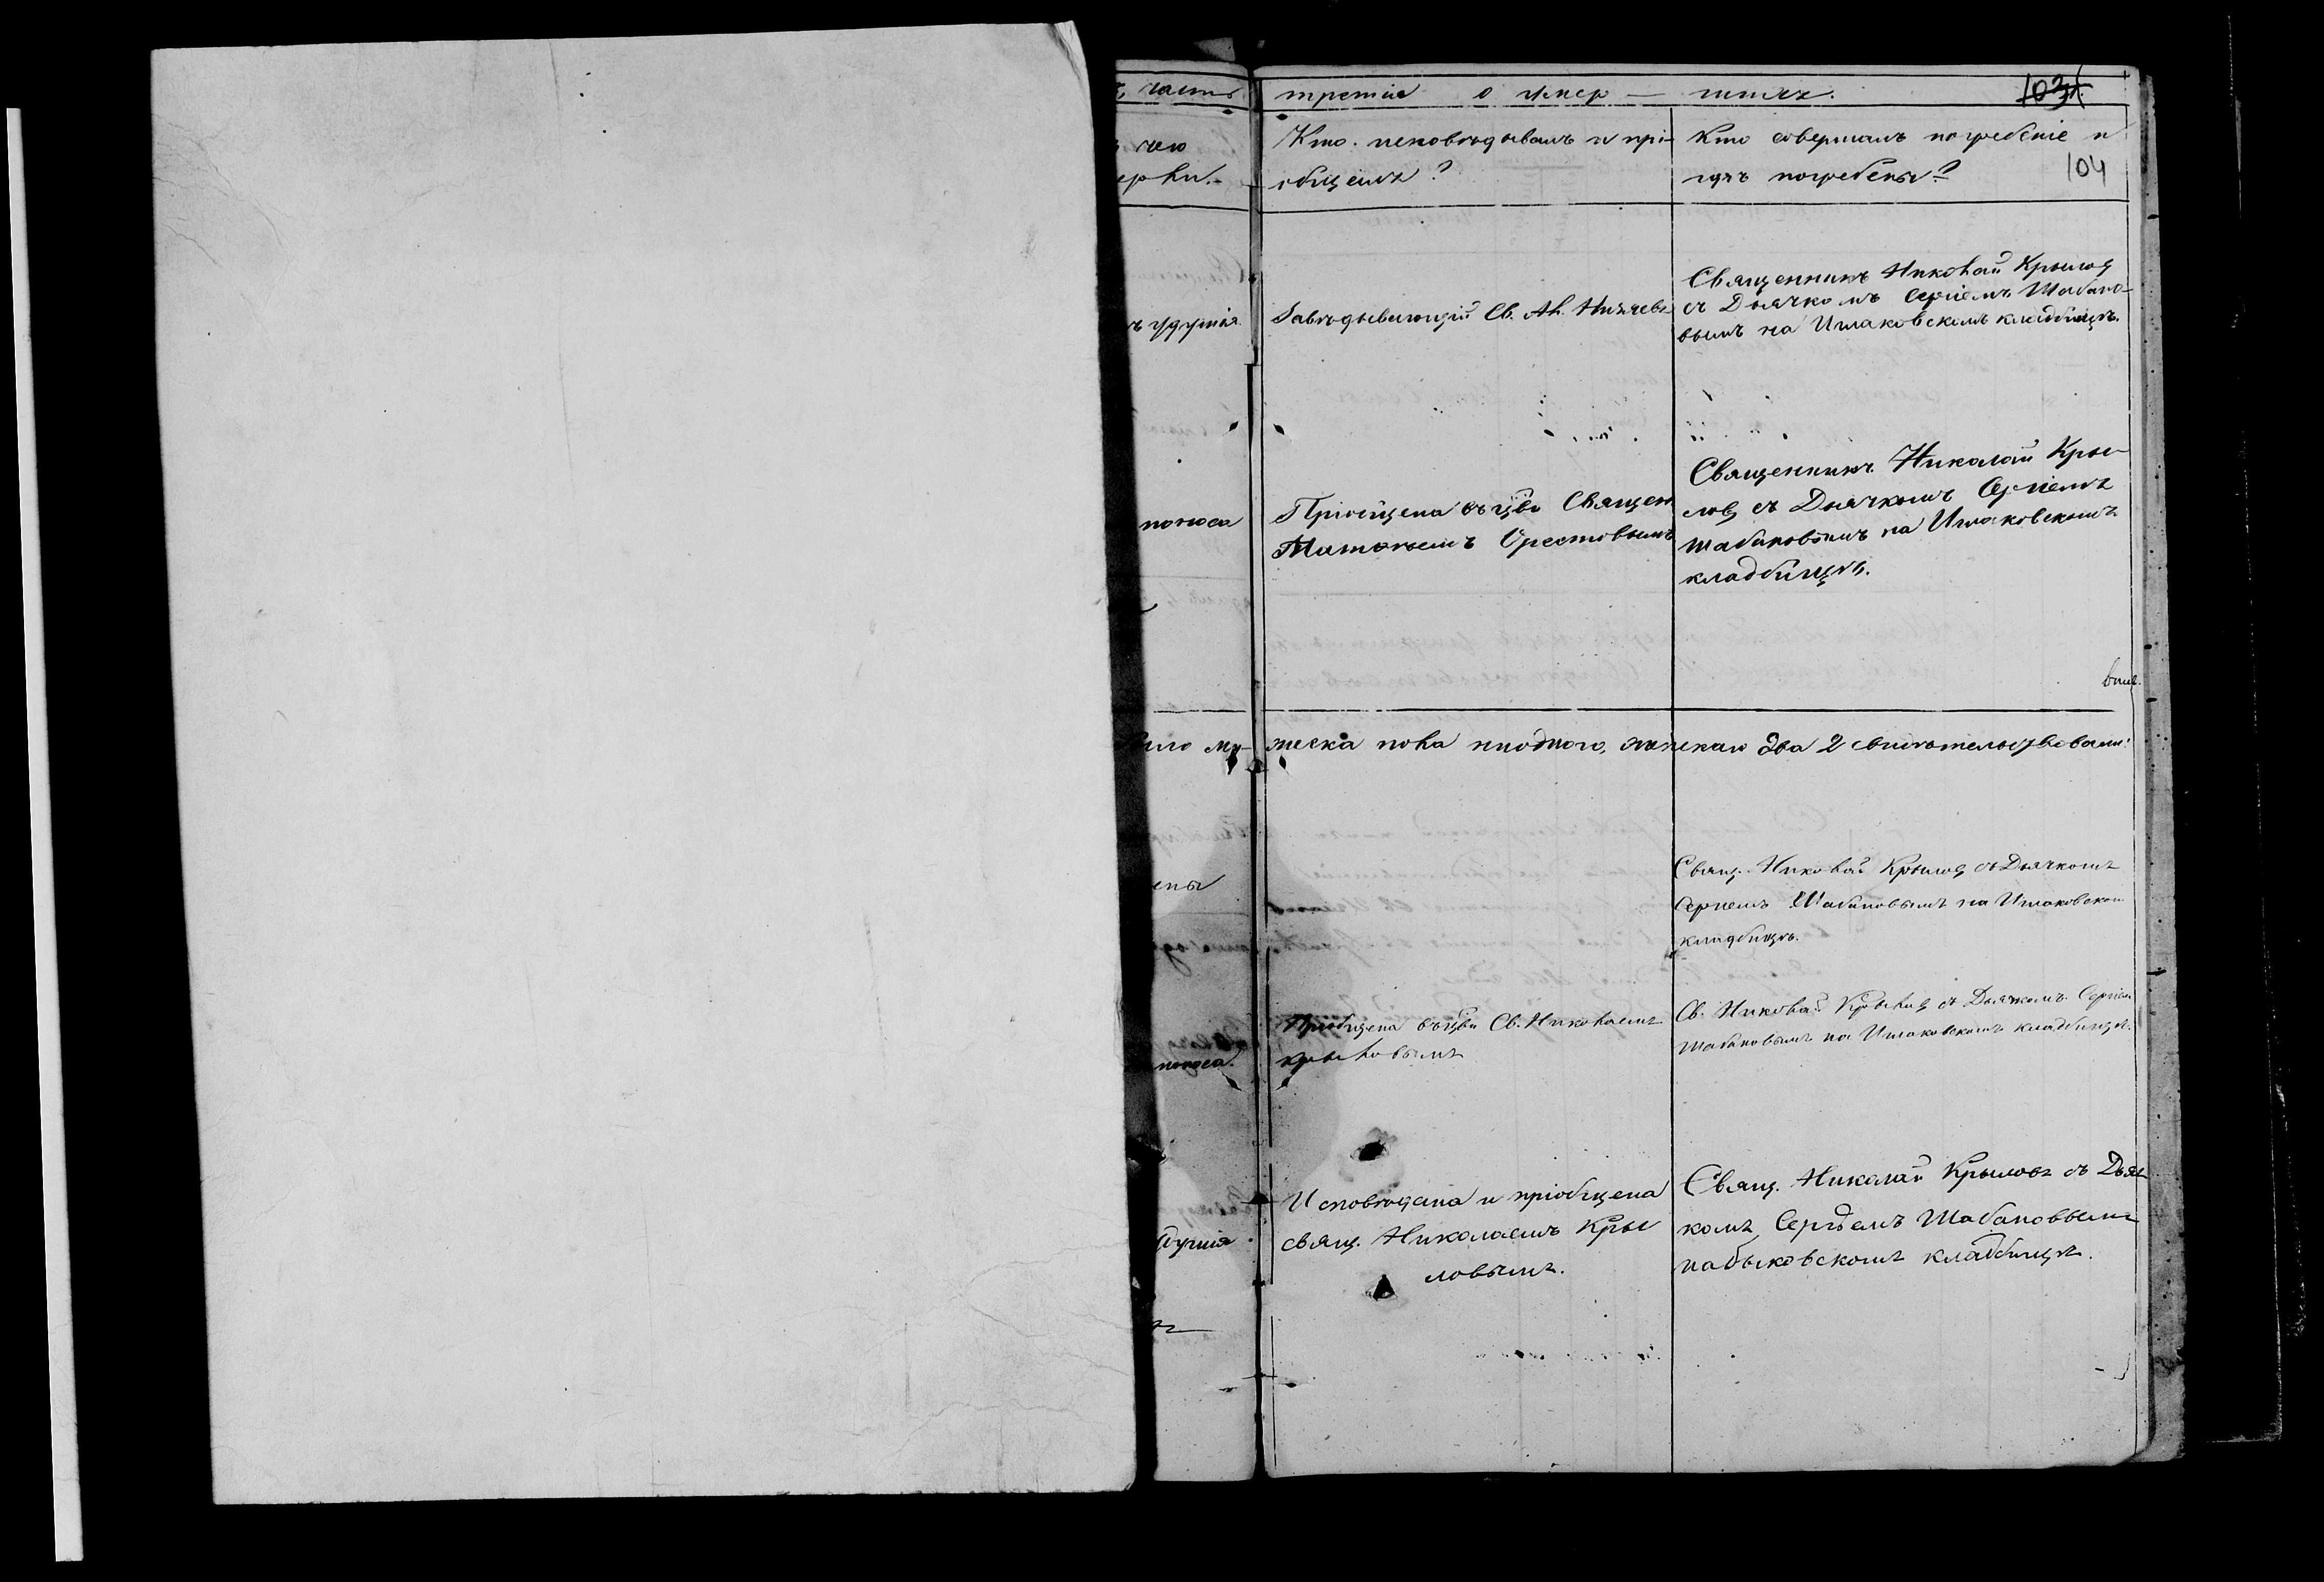 часть третія о умер— шихъ. 103
104
чего
Кто исповѣдывалъ и прі-
общилъ?
Кто совершалъ погребеніе и
гдѣ погребены?
удушія
Завѣдывающій Св. Ал.
Священникъ Николай Крылов
съ Дьячкомъ Сергіемъ Шабано-
вымъ на Ишаковскомъ кладбищѣ.
поноса
Пріобщена въ цѣви Священ
Орестовымъ
Священникъ Николай Кры-
лов съ Дьячкомъ Сергіемъ
Шабановымъ на Ишаковскомъ
кладбищѣ.
му- жеска пола ни одного, женскаго два 2 свидѣтельствовали:
Свящ. Николай Крылов съ Дьячкомъ
Сергіемъ Шабановымъ на Ишаковском
кладбищѣ.
поноса.
Пріобщена въ цѣви Св. Николаемъ
Крыловымъ
Св. Николай Крылов съ Дьячкомъ Сергіем
Шабановымъ на Ишаковскомъ кладбищѣ.
Исповѣдана и пріобщена
свящ. Николаемъ Кры
ловымъ.
Свящ. Николай Крыловъ съ Дья
комъ Сергѣемъ Шабановвымъ
кладбищѣ.